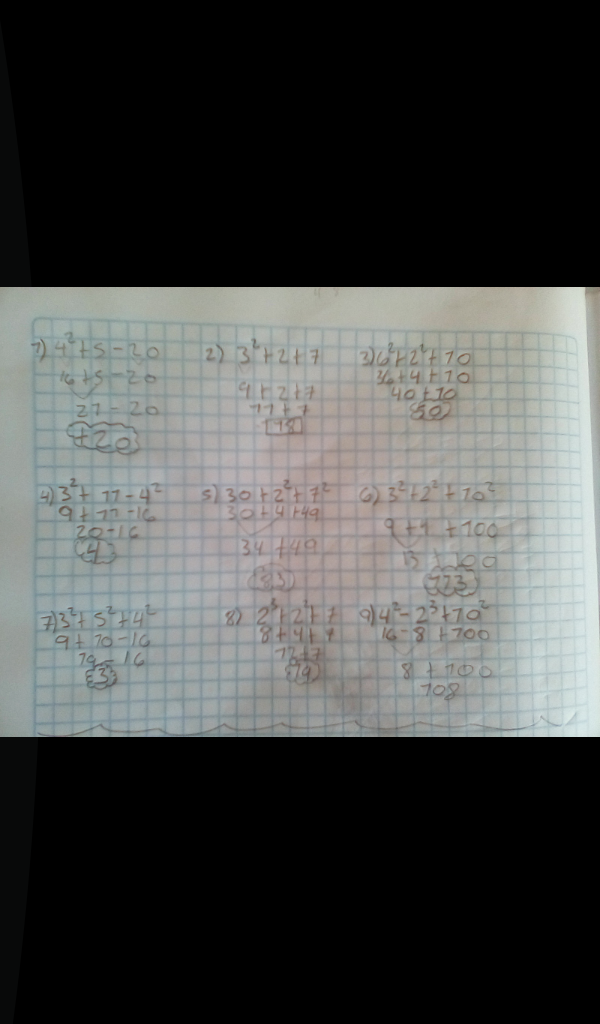 1) 4²+5-20
16+5-20
21-20
+20
2) 3²+2+7
9+2+7
11+7
118
3) 6²+2²+10
36+4+10
40+10
50
4) 3²+11-4²
9+11-16
20-16
4
5) 30+2²+7²
30+4+49
34+49
83
6) 3²+2²+10²
9+4+100
13+100
113
7) 3²+5²+4²
9+10-16
19-16
3
8) 2³+2²+7
8+4+7
12+7
19
9) 4²-2³+10²
16-8+100
8+100
108